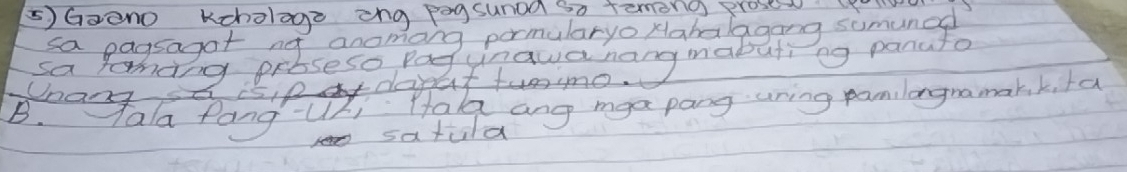 5) Gaano kahalaga ang pagsunod sa tamang proseso
sa pagsagot ng anomang pormularyo Mahalagang sumunod
sa tamang proseso Pag unawa nang mabuti ng panuto
Unang sa isip dapat tumimo.
B. Tala Pang-Uri, Itala ang mga pang uring pamilang na makikita
sa tula